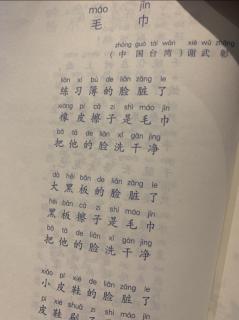 máo jīn
毛 巾
zhōng guó tái wān xiè wǔ zhāng
(中国台湾)谢武彰
liàn xí bù de liǎn zāng le
练习簿的脸脏了
xiàng pí cā zi shì máo jīn
橡皮擦子是毛巾
bǎ tā de liǎn xǐ gān jìng
把他的脸洗干净
dà hēi bǎn de liǎn zāng le
大黑板的脸脏了
hēi bǎn cā zi shì máo jīn
黑板擦子是毛巾
bǎ tā de liǎn xǐ gān jìng
把他的脸洗干净
xiǎo pí xié de liǎn zāng le
小皮鞋的脸脏了
pí xié shuā zi shì máo
皮鞋刷子